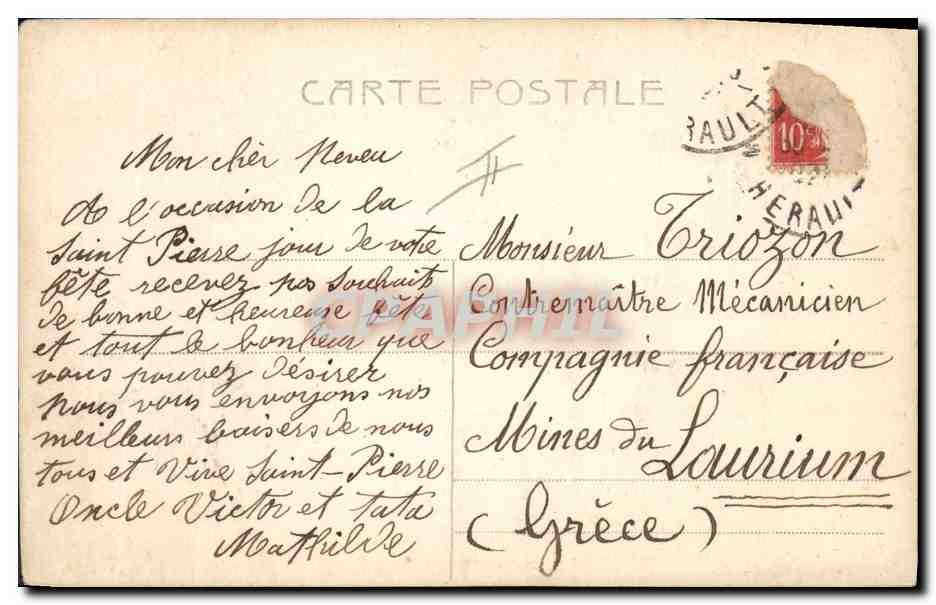 CARTE POSTALE
RAULT
10
HERAU
Mon chèr Neveu
A l'occasion de la
Saint Pierre jour de votre
fête recevez nos souhaits
de bonne et heureuse fête
et tout le bonheur que
vous pouvez désirer
nous vous envoyons nos
meilleurs baisers de nous
tous et Vive Saint-Pierre
Oncle Victor et tata
Mathilde
Monsieur Triozon
Contremaître Mécanicien
Compagnie française
Mines du Laurium
(Grèce)
CPAPHIL